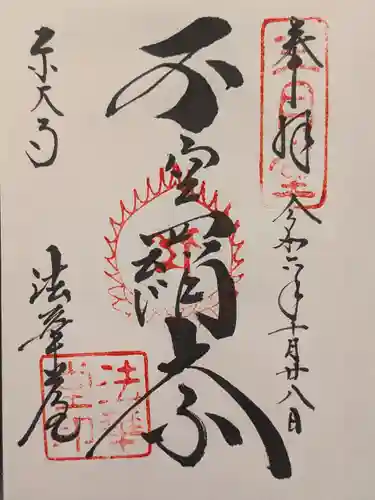 奉拝
令和六年十月廿八日
不空羂索
東大寺
法華堂